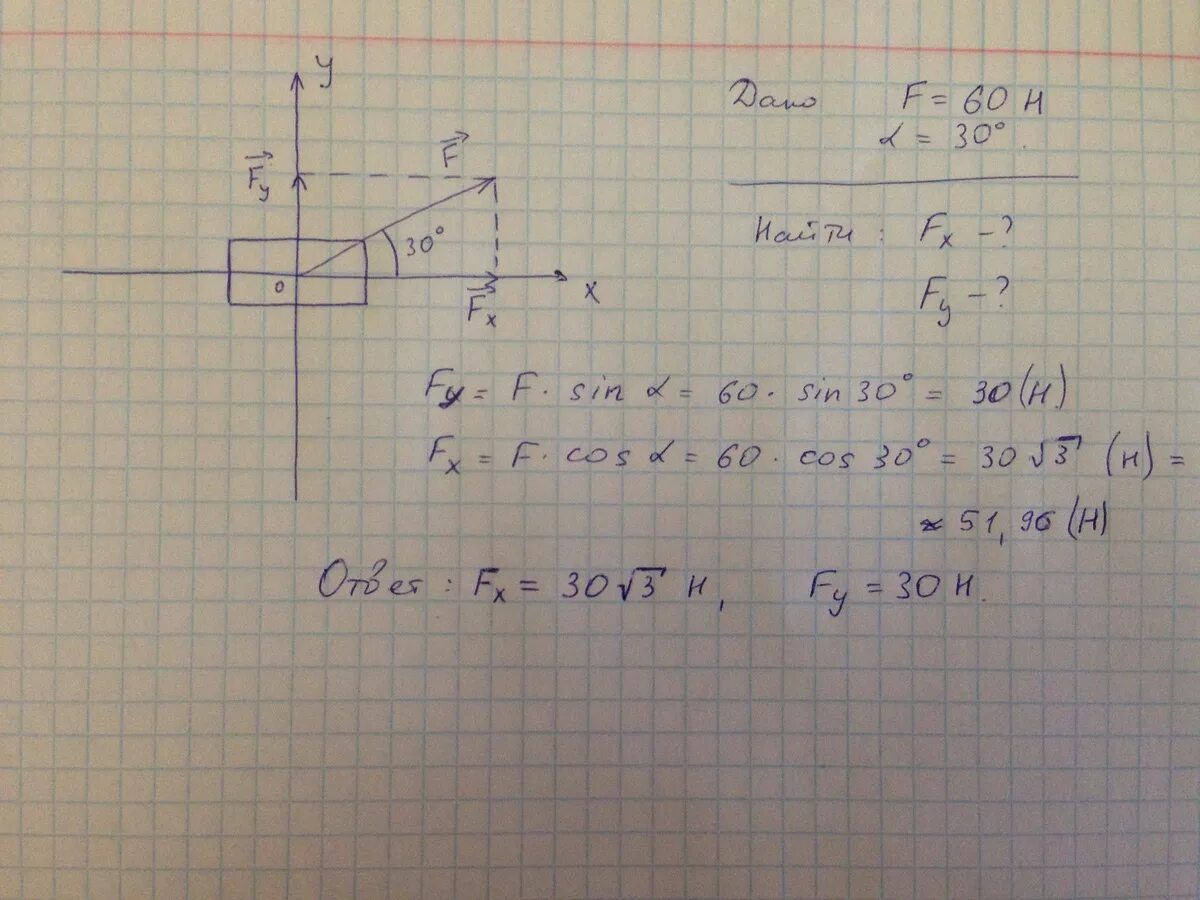 y
F⃗
F⃗y
30°
0
F⃗x
x
Дано F = 60 Н
α = 30°.
Найти : Fx – ?
Fy – ?
Fy = F · sin α = 60 · sin 30° = 30 (Н)
Fx = F · cos α = 60 · cos 30° = 30 √3 (Н) =
≈ 51,96 (Н)
Ответ : Fx = 30 √3 Н, Fy = 30 Н.